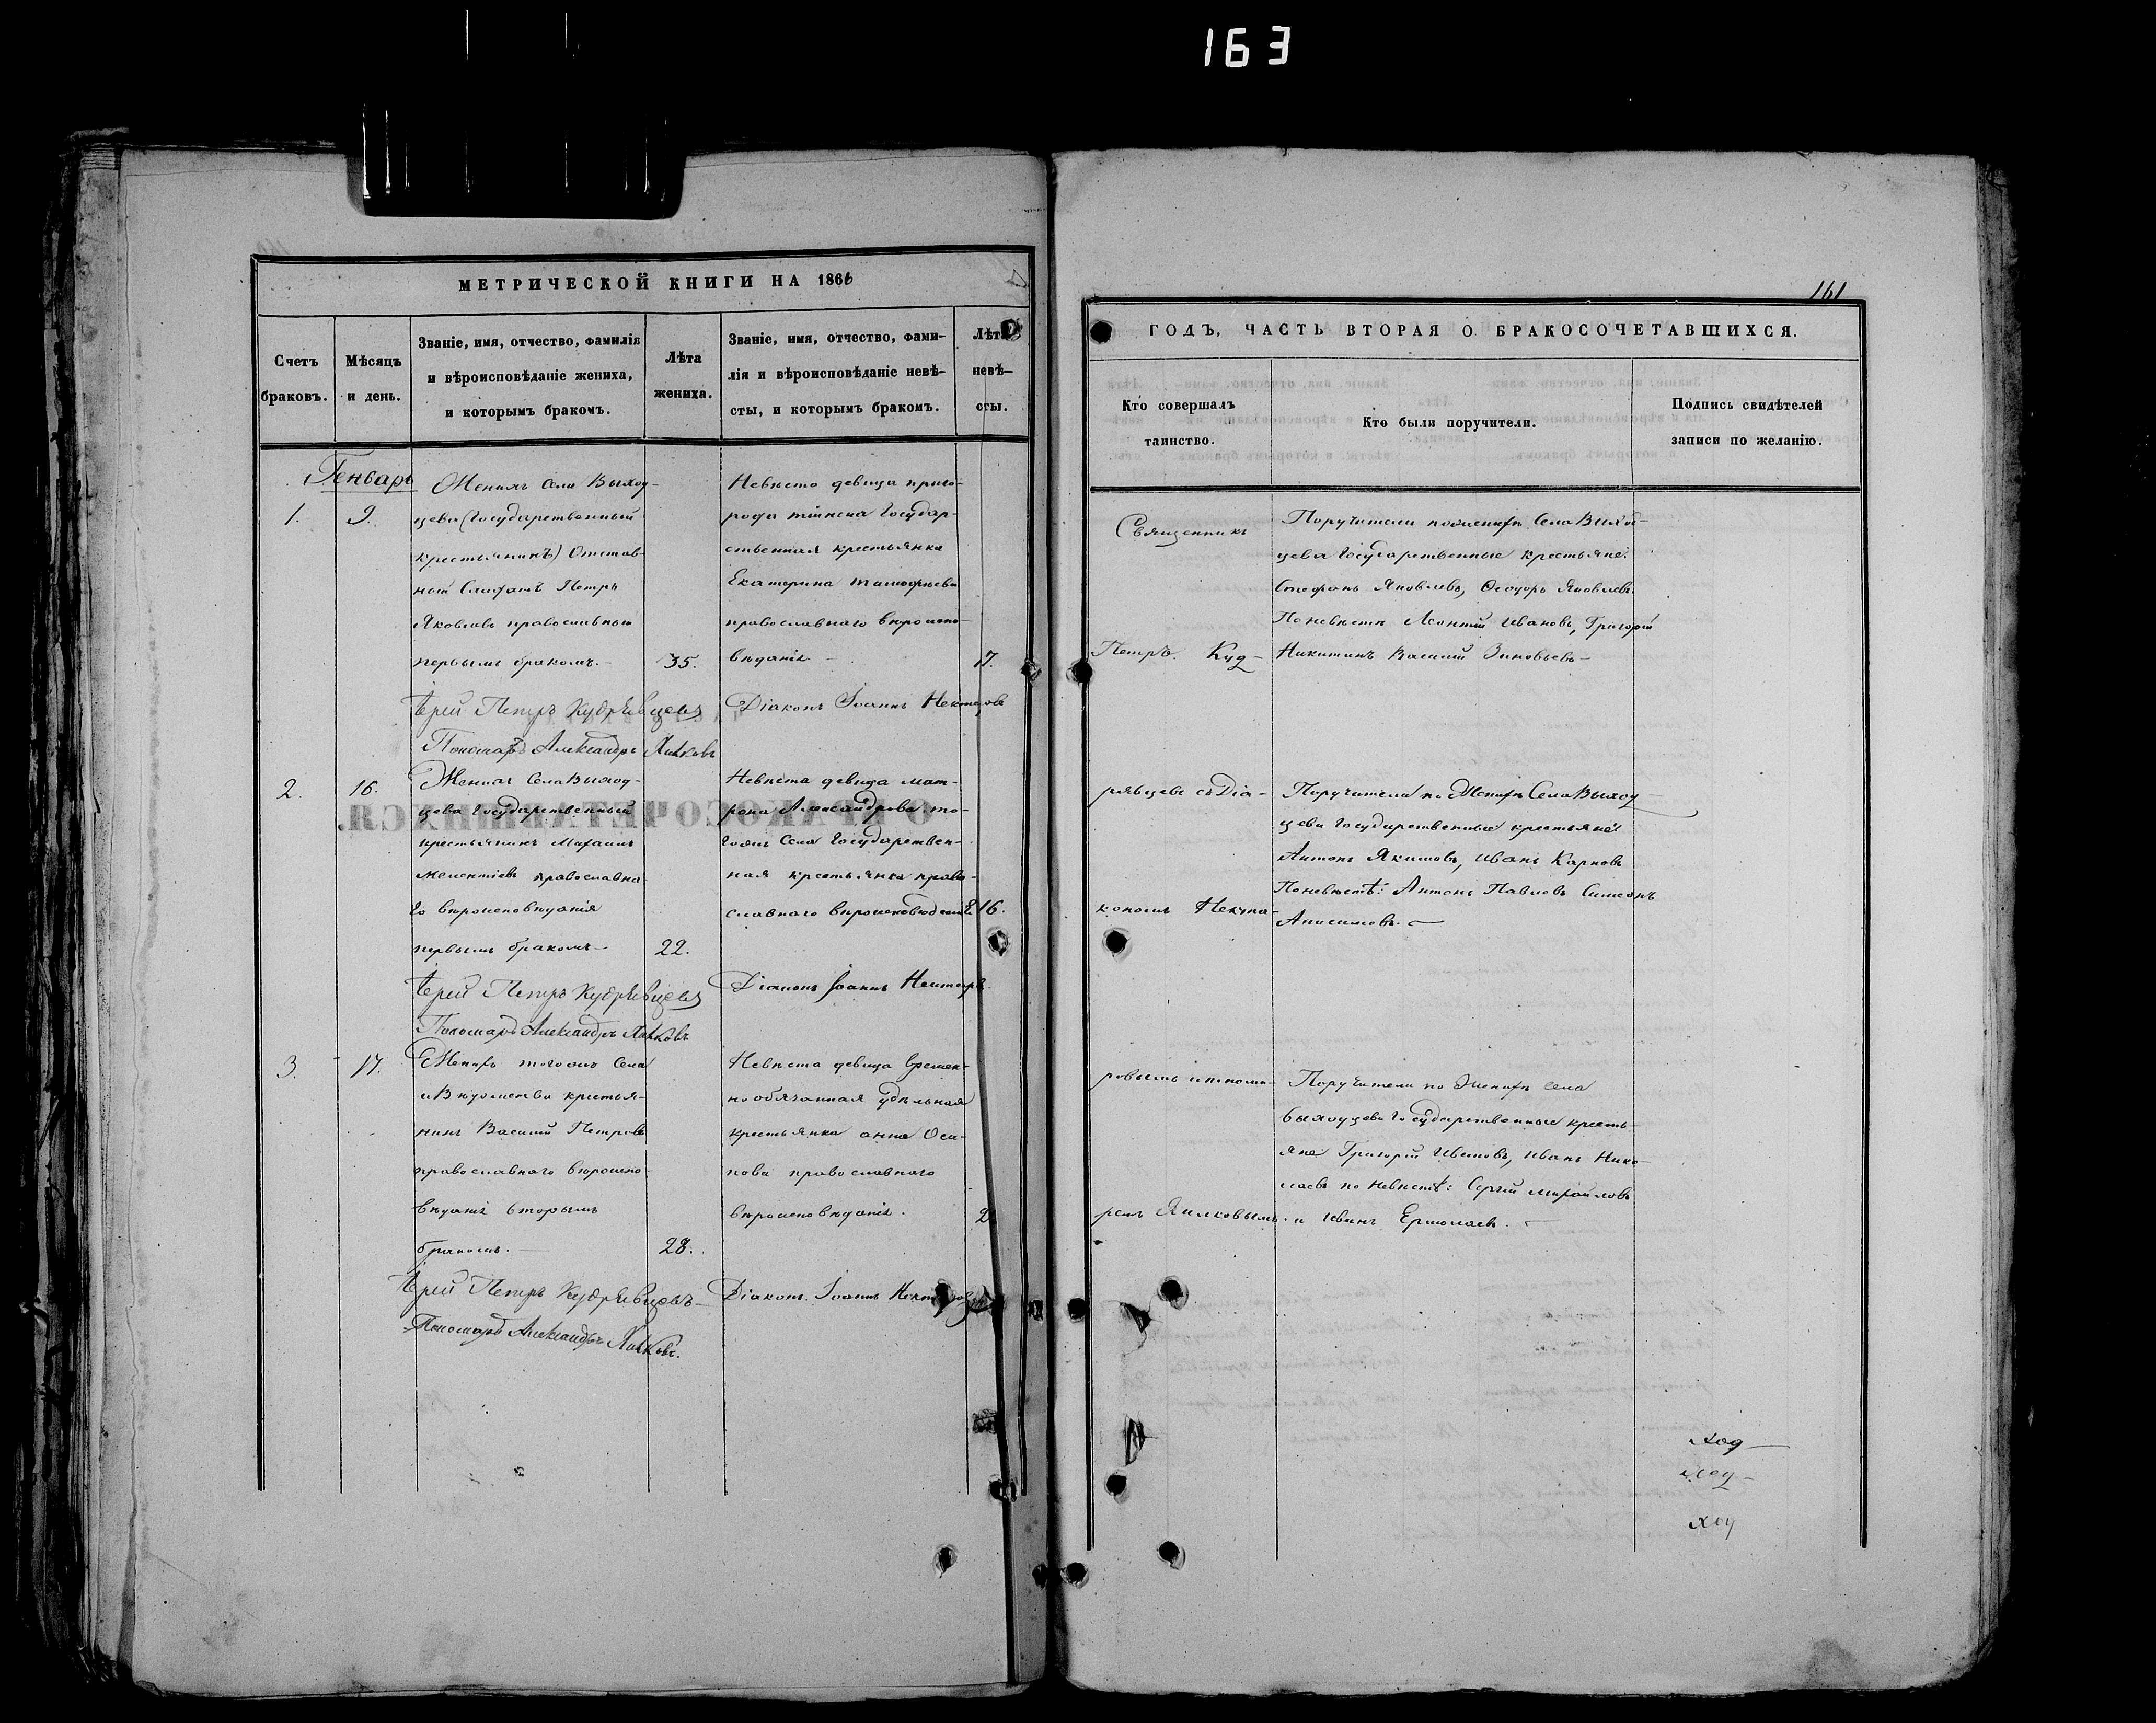 163
МЕТРИЧЕСКОЙ КНИГИ НА 1866
Счетъ браковъ.
Мѣсяцъ и день.
Званіе, имя, отчество, фамилія
и вѣроисповѣданіе жениха,
и которымъ бракомъ.
Лѣта
жениха.
Званіе, имя, отчество, фами-
лія и вѣроисповѣданіе невѣ-
сты, и которымъ бракомъ.
Лѣта
невѣ-
сты.
Генварь
1.
9.
Женихъ Села Выход-
цева (Государственный
крестьянинъ) Отстав-
ной Солдатъ Петръ
Яковлевъ православный
первымъ бракомъ.
35.
Невѣста девица приго-
рода Государ-
ственная крестьянка
Екатерина Тимофѣева
православнаго вѣроиспо-
вѣданія
17.
Іерей Петръ Кудрявцевъ
Діаконъ Іоаннъ Нектаровъ
Пономарь Александръ
2.
16.
Женихъ Села Выход-
цева Государственный
крестьянинъ Михаилъ
Мелентіевъ православна-
го вѣроисповѣданія
первымъ бракомъ
22.
Невѣста девица Мат-
рона Александрова то-
гожъ Села Государствен-
ная крестьянка право-
славнаго вѣроисповѣданія
16.
Іерей Петръ Кудрявцевъ
Діаконъ Іоаннъ Нектаровъ
Пономарь Александръ
3.
17.
Женихъ тогожъ Села
и Вѣдомства крестья-
нинъ Василій Петровъ
православнаго вѣроиспо-
вѣданія вторымъ
бракомъ.
28.
Невѣста девица времен-
но обязанная удѣльная
крестьянка Анна Оси-
пова православнаго
вѣроисповѣданія.
Іерей Петръ Кудрявцевъ
Діаконъ Іоаннъ Нектаровъ
Пономарь Александръ
161
ГОДЪ, ЧАСТЬ ВТОРАЯ О БРАКОСОЧЕТАВШИХСЯ.
Кто совершалъ
таинство.
Кто были поручители.
Подпись свидѣтелей
записи по желанію.
Священникъ
Петръ Куд-
рявцевъ съ Діа-
кономъ Некта-
ровымъ и понома-
ремъ
Поручители по женихѣ Села Выход-
цева Государственные крестьяне
Стефанъ Яковлевъ, Ѳеодоръ Яковлевъ
По невѣстѣ Леонтій Ивановъ, Григорій
Никитинъ Василій Зиновьевъ
Поручители по Женихѣ Села Выход-
цева Государственные крестьяне
Антонъ Якимовъ, Иванъ Карповъ
По невѣстѣ: Антонъ Павловъ Симеонъ
Анисимовъ.
Поручители по Женихѣ Села
Выходцева Государственные кресть-
яне Григорій Ивановъ, Иванъ Нико-
лаевъ по невѣстѣ: Сергій Михайловъ
и Иванъ Ермолаевъ.